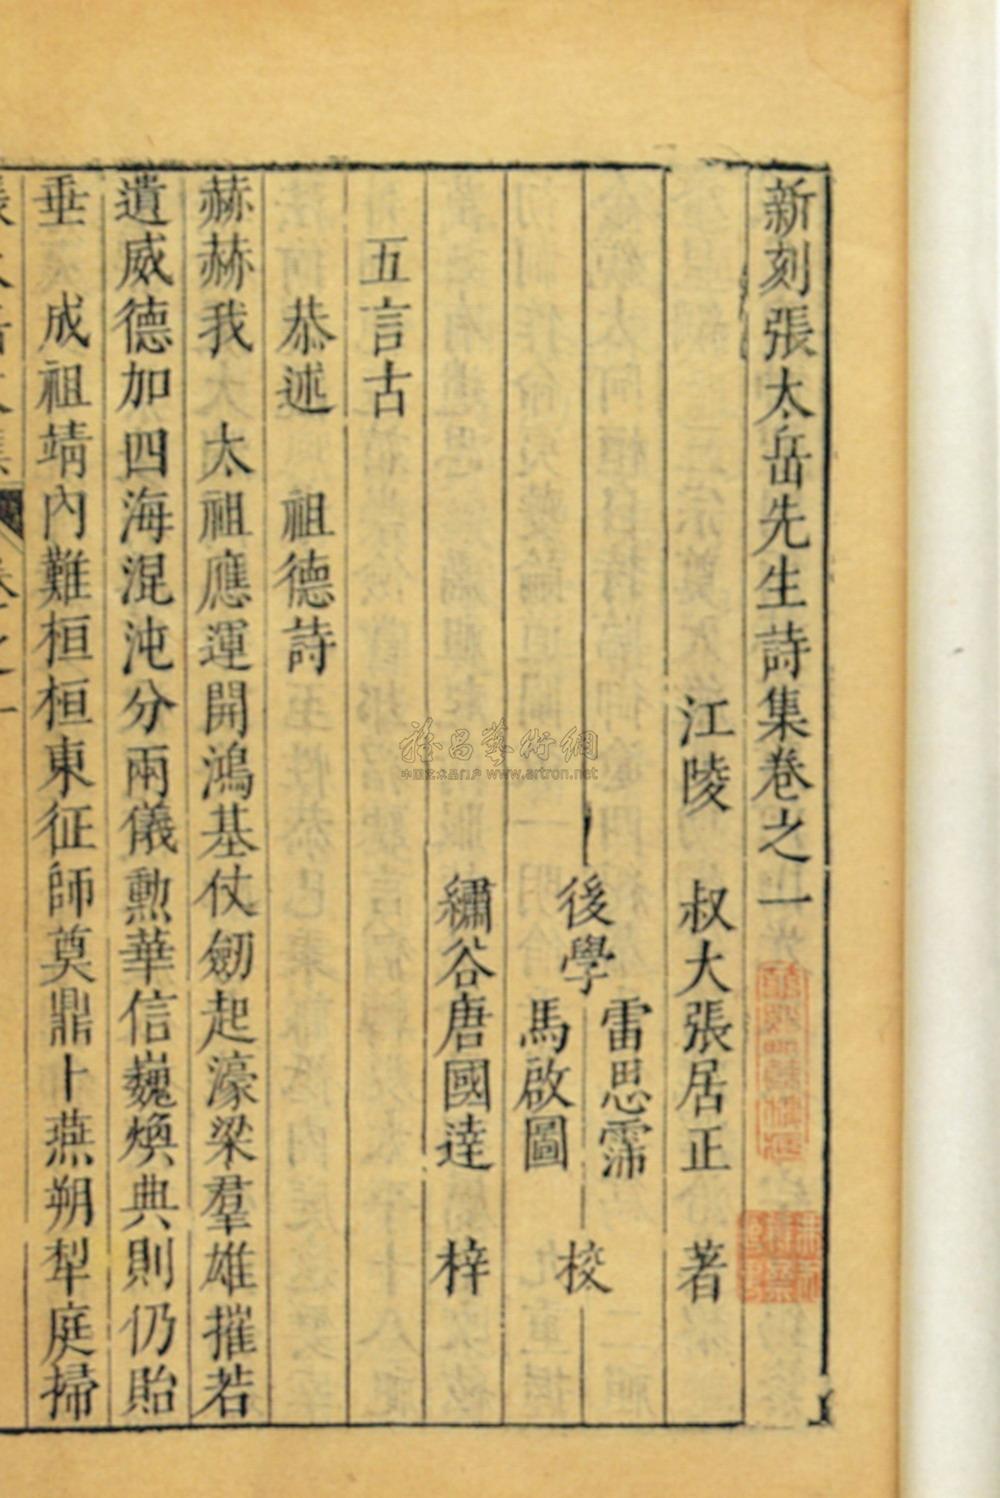 新刻張太岳先生詩集卷之一
江陵 叔大張居正 著
後學 雷思霈 馬啟圖 校
繡谷唐國達 梓
五言古
恭述 祖德詩
赫赫我 太祖應運開鴻基仗劒起濠梁羣雄摧若
遺威德加四海混沌分兩儀勲華信巍煥典則仍貽
垂 成祖靖內難桓桓東征師奠鼎卜燕朔犁庭掃
雅昌藝術網
中国艺术品门户 www.artron.net